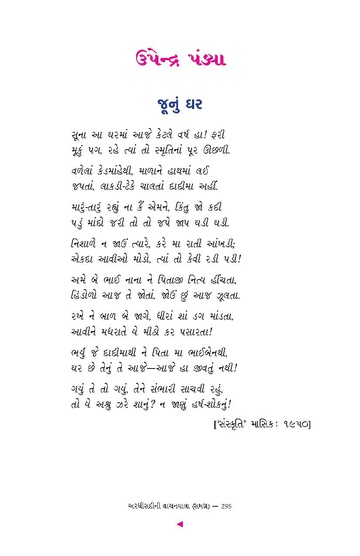 ઉપેન્દ્ર પંડ્યા
જૂનું ઘર
સૂના આ ઘરમાં આજે કેટલે વર્ષ હા! ફરી
મૂકું પગ, રહે ત્યાં તો સ્મૃતિનાં પૂર ઊછળી.
વળેલાં કેડમાંહેથી, માળાને હાથમાં લઈ
જપતાં, લાકડી-ટેકે ચાલતાં દાદીમા અહીં.
મારું-તારું રહ્યું ના કૈં એમને, કિંતુ જો કદી
પડું માંદો જરી તો તો જપે જાપ ઘડી ઘડી.
નિશાળે ન જાઉં ત્યારે, કરે મા રાતી આંખડી;
એકદા આવીઓ મોડો, ત્યાં તો કેવી રડી પડી!
અમે બે ભાઈ નાના ને પિતાજી નિત્ય હીંચતા,
હિંડોળો આજ તે જોતાં, જોઉં છું આજ ઝૂલતા.
રખે ને બાળ બે જાગે, ધીરાં શાં ડગ માંડતા,
આવીને મધરાતે યે મીઠો કર પસારતા!
ભર્યું જે દાદીમાથી ને પિતા મા ભાઈબેનથી,
ઘર છે તેનું તે આજે—આજે હા જીવતું નથી!
ગયું તે તો ગયું, તેને સંભારી સાચવી રહું,
તો યે અશ્રુ ઝરે શાનું? ન જાણું હર્ષ-શોકનું!
['સંસ્કૃતિ' માસિક: ૧૯૫૦]
અરધીસદીની વાચનયાત્રા (સમગ્ર) — 295